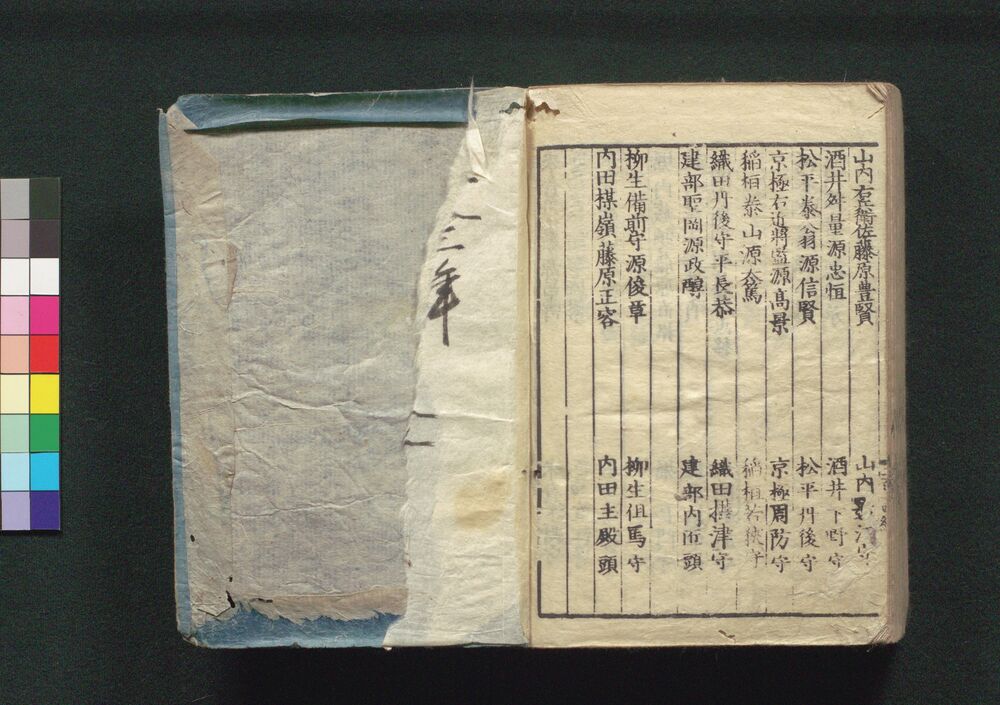 山内右衛佐藤原豊賢
山内
酒井舛量源忠恒
酒井下野守
松平泰翁源信賢
松平丹後守
京極右近将監源高景
京極周防守
稲垣泰山源
稲垣若狭守
織田丹後守平長恭
織田摂津守
建部聖岡源政醇
建部内匠頭
柳生備前守源俊章
柳生但馬守
内田楳嶺藤原正容
内田主殿頭
三年